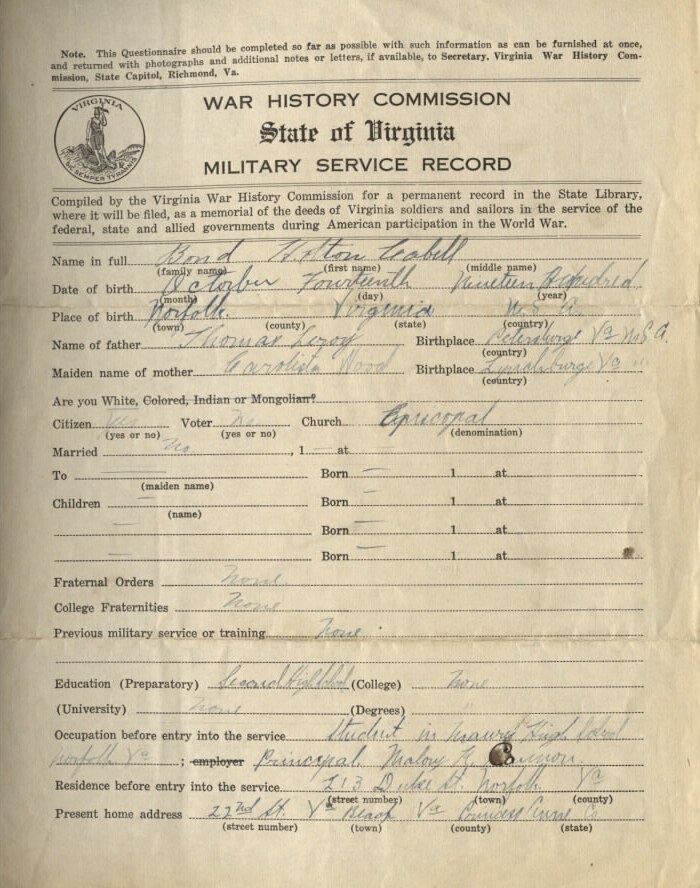 Note. This Questionnaire should be completed so far as possible with such information as can be furnished at once,
and returned with photographs and additional notes or letters, if available, to Secretary, Virginia War History Com-
mission, State Capitol, Richmond, Va.
VIRGINIA
SIC SEMPER TYRANNIS
WAR HISTORY COMMISSION
State of Virginia
MILITARY SERVICE RECORD
Compiled by the Virginia War History Commission for a permanent record in the State Library,
where it will be filed, as a memorial of the deeds of Virginia soldiers and sailors in the service of the
federal, state and allied governments during American participation in the World War.
Name in full Bond Holton Cabell
(family name) (first name) (middle name)
Date of birth October Fourteenth Nineteen Hundred
(month) (day) (year)
Place of birth Norfolk Virginia U.S.A.
(town) (county) (state) (country)
Name of father Thomas Leroy Birthplace Petersburge Va U.S.A.
(country)
Maiden name of mother Carolista Wood Birthplace Lynchburge Va "
(country)
Are you White, Colored, Indian or Mongolian?
Citizen Yes Voter No Church Episcopal
(yes or no) (yes or no) (denomination)
Married No , 1 — at
To — Born — 1 at
(maiden name)
Children — Born — 1 at
(name)
— Born — 1 at
— Born — 1 at
Fraternal Orders None
College Fraternities None
Previous military service or training None
Education (Preparatory) Second High School (College) None
(University) None (Degrees) "
Occupation before entry into the service Student in Maury High School
Norfolk Va ; employer Principal
Residence before entry into the service 213 Duke St. Norfolk Va
(street number) (town) (county)
Present home address 22nd St. Va Beach Va Princess Anne Co
(street number) (town) (county) (state)